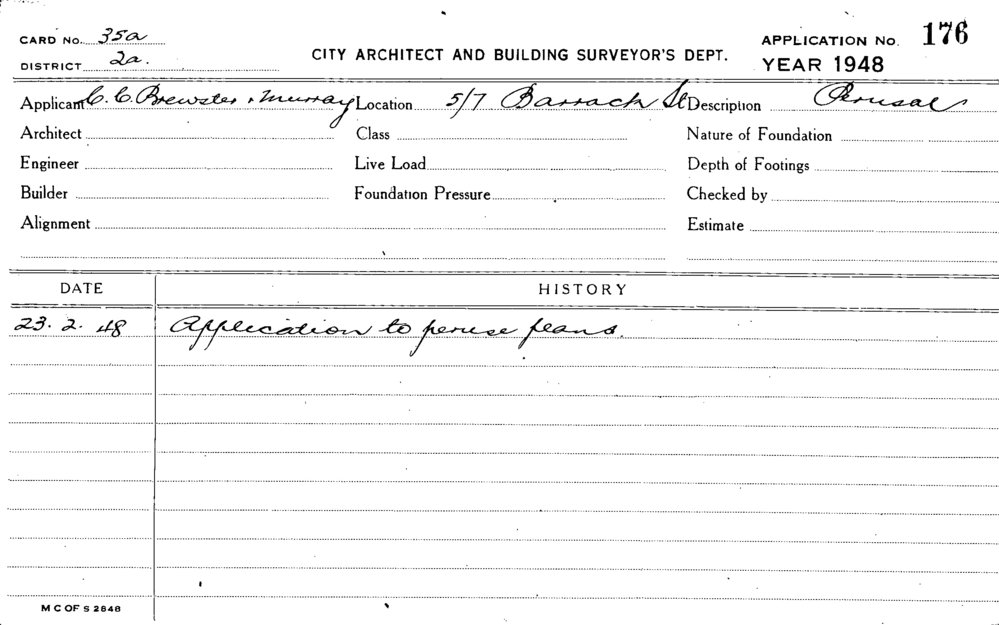 CARD No. 35a
DISTRICT 2a.
CITY ARCHITECT AND BUILDING SURVEYOR'S DEPT.
APPLICATION No. 176
YEAR 1948
Applicant C. C. Brewster & Murray Location 5/7 Barrack St Description Perusal
Architect Class Nature of Foundation
Engineer Live Load Depth of Footings
Builder Foundation Pressure Checked by
Alignment Estimate
DATE HISTORY
23. 2. 48 Application to peruse plans.
M C OF S 2848